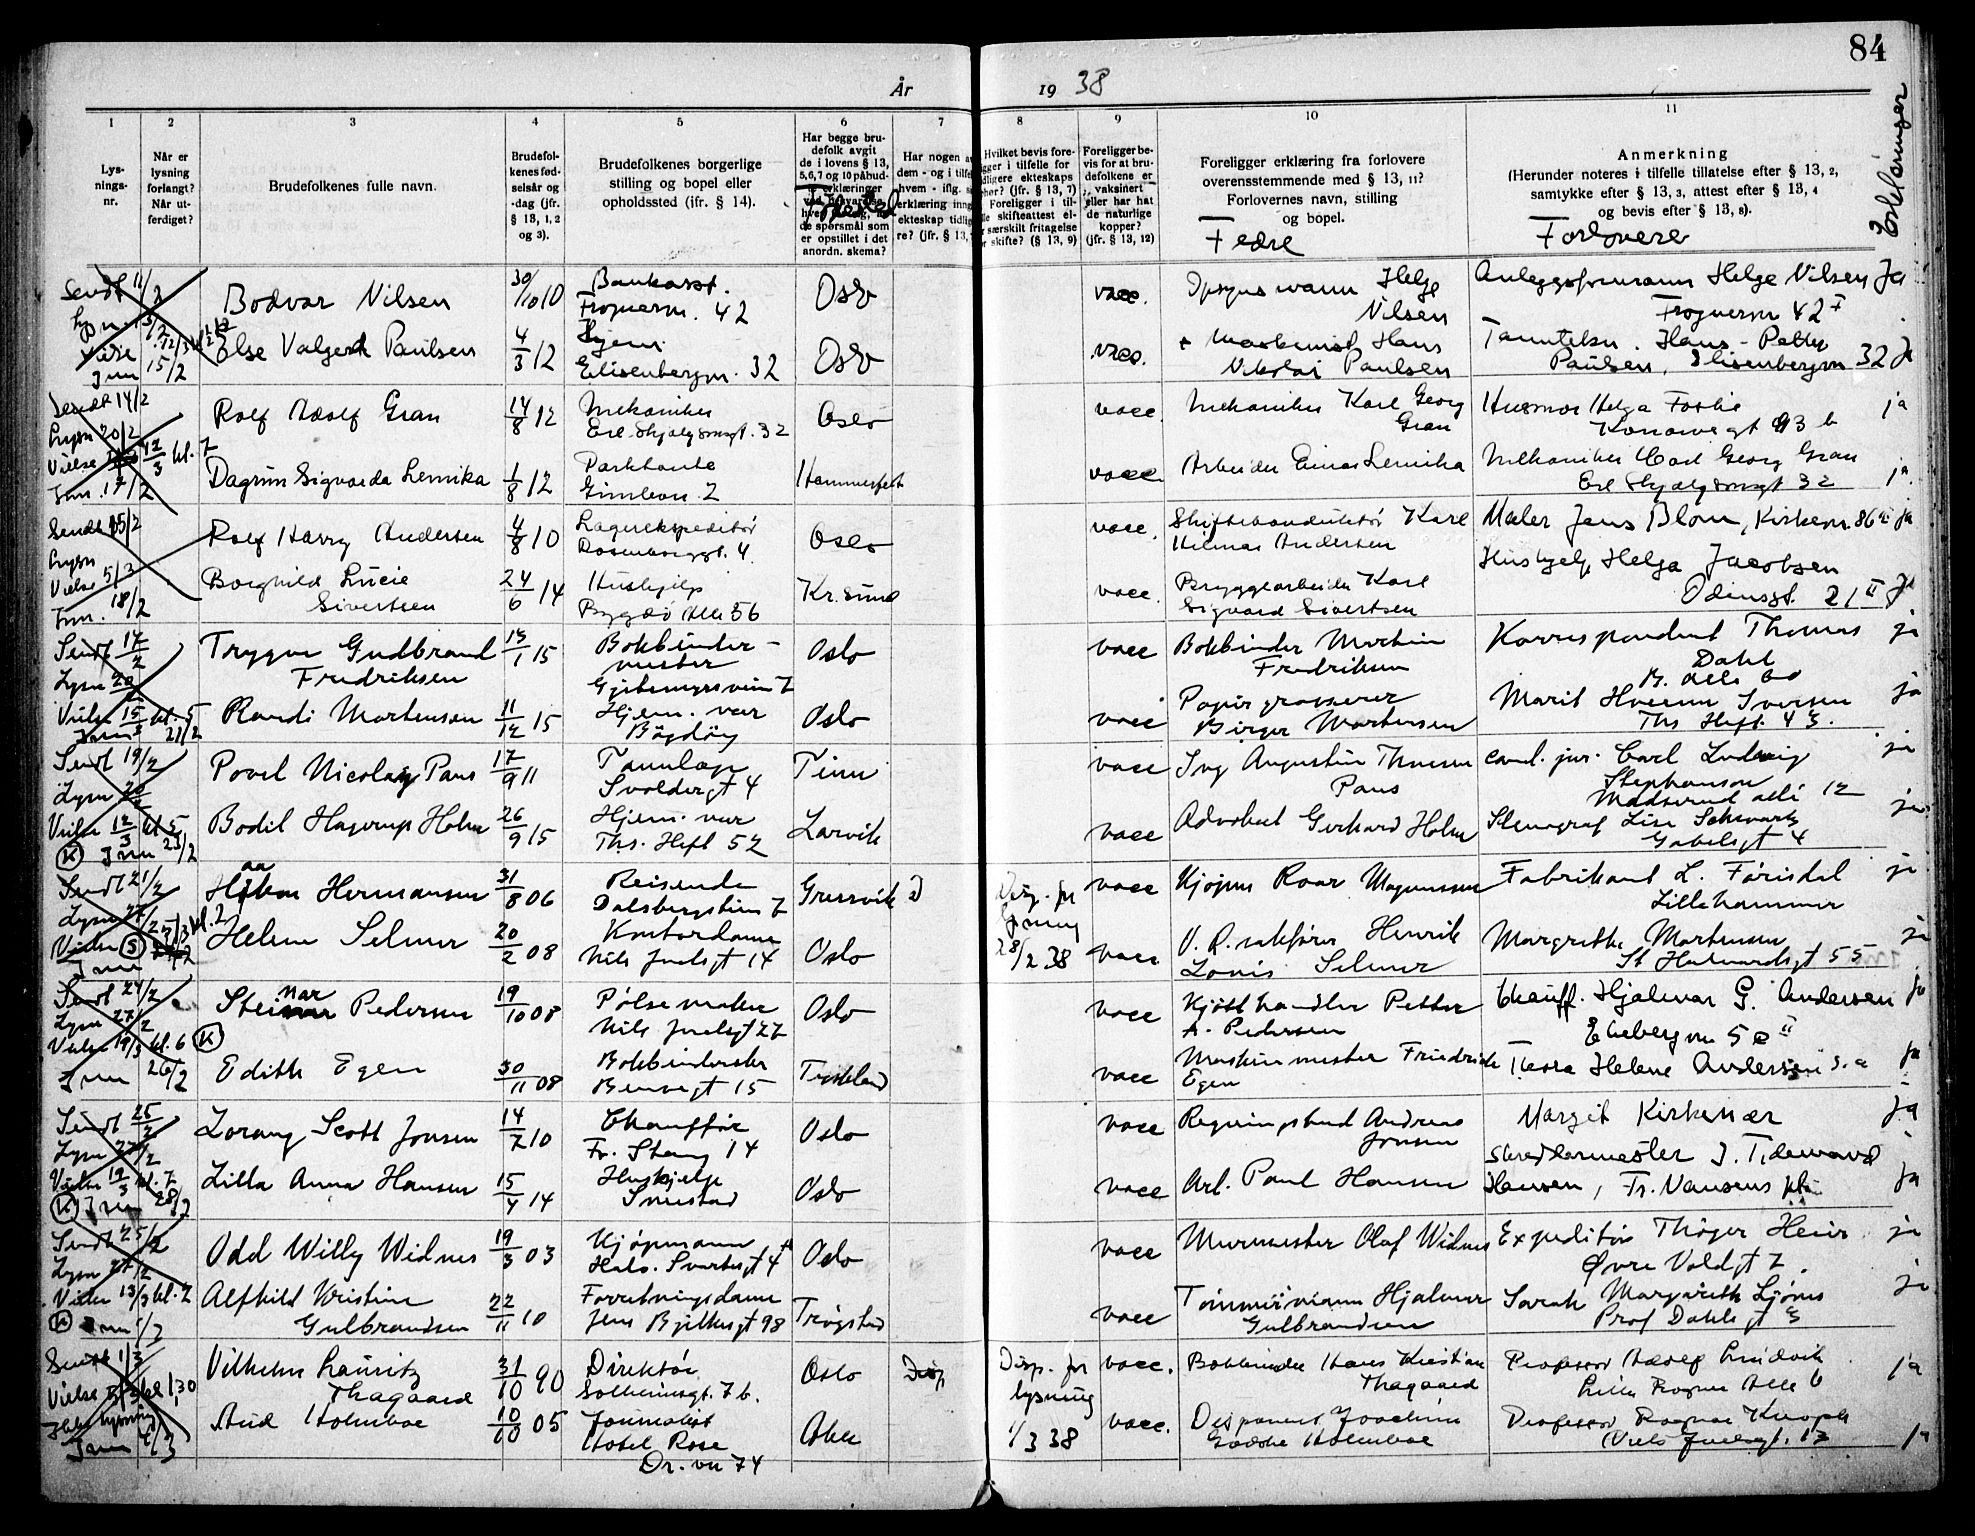 84
År 19 38
Erklæringer
1
2
3
4
5
6
7
8
9
10
11
Lys-
nings-
nr.
Når er
lysning
forlangt?
Når ut-
ferdiget?
Brudefolkenes fulle navn.
Brudefol-
kenes fød-
selsår og
-dag (jfr.
§ 13, 1, 2
og 3).
Brudefolkenes borgerlige
stilling og bopel eller
opholdssted (ifr. § 14).
Har begge bru-
defolk avgit
de i lovens § 13,
5,6,7 og 10 påbud-
erklæringer
de spørsmål som
er opstillet i det
anordn. skema?
Fødested
Har nogen
dem - og i tilfe
hvem - iflg. s
erklæring inng
ekteskap tidlig
re? (jfr. § 13,
Hvilket bevis fore-
gger i tilfelle for
dligere ekteskaps
her? (jfr. § 13, 7)
Foreligger i til-
le skifteattest el-
r særskilt fritagelse
r skifte? (§ 13, 9)
Foreligger be-
vis for at bru-
defolkene er
vaksinert
eller har hat
de naturlige
kopper?
(jfr. § 13, 12)
Foreligger erklæring fra forlovere
overensstemmende med § 13, 11?
Forlovernes navn, stilling
og bopel.
Fedre
Anmerkning
(Herunder noteres i tilfelle tillatelse efter § 13, 2,
samtykke efter § 13, 3, attest efter § 13, 4
og bevis efter § 13, 8).
Forlovere
Sendt 11/2
Bodvar Nilsen 30/10 10 Bankasst. Frognervn. 42 Oslo vacc. Helge Nilsen Anleggsformann Helge Nilsen Frognervn 42 I Ja
Jnn 15/2
Else Valgerd Paulsen 4/3 12 Hjem. Elisenbergvn. 32 Oslo vacc. + Maskinist Hans Nikolai Paulsen Hans-Petter Paulsen, Elisenbergvn 32 Ja
Sendt 14/2
Lysn 20/2
Vielse 12/3 kl. 7
Jnn. 17/2
Rolf Adolf Gran 14/8 12 Mekaniker Erl. Skjalgsonsgt. 32 Oslo vacc Mekaniker Karl Georg Gran Husmor Helga Foslie 93 b ja
Dagrun Sigvarda Lemika 1/8 12 Parktante Gimlevn. 2 Hammerfest vacc. Arbeider Einar Lemika Mekaniker Carl Georg Gran Erl Skjalgsonsgt 32 ja.
Sendt 15/2
Lysn
Vielse 5/3
Jnn. 18/2
Rolf Harry Andersen 4/8 10 Lagerekspeditør Rosenborggt. 4 Oslo vacc. Skiftekonduktør Karl Hilmar Andersen Maler Jens Blom, Kirkevn. 86 ja
Borghild Lucie Sivertsen 24/6 14 Hushjelp Bygdø Alle 56 Kr.sund vacc. Bryggearbeider Karl Sigvard Sivertsen Hushjelp Helga Jacobsen Odinsgt. 21 II Ja
Sendt 17/2
Lysn 20/2
Vielse 15/3 kl. 5
Jnn 21/2
Trygve Gudbrand Fredriksen 13/1 15 Bokbinder-mester Gjetemyrsveien 7 Oslo vacc Bokbinder Martin Fredriksen Korrespondent Thomas Dahl B. alle 60 ja
Randi Martensen 11/12 15 Hjem. vær Bygdøy Oslo vacc Papirgrosserer Birger Martensen Marit Hverven Iversen Ths Heft. 43. ja
Sendt 19/2
Lysn 20/2
Vielse 12/3 kl 5
(K) Jnn 23/2
Povel Nicolay Paus 17/9 11 Tannlæge Svoldergt 4 Tinn vacc Ing Augustin Thoresen Paus cand. jur. Carl Ludwig Stephanson Madserud allé 12 ja
Bodil Hagerup Holm 26/9 15 Hjem. vær Ths. Heft 52 Larvik vacc Advokat Gerhard Holm Stenograf Lise Schwartz Gabelsgt 4 ja
Sendt 21/2
Lysn 27/2
Vielse (S) kl. 2
Jnn
Haakon Hermansen 31/8 06 Reisende Dalsbergstien 7 Gressvik D Disp. for lysning 28/2 38 vacc Kjøpm Roar Magnussen Fabrikant L. Førisdal Lillehammer ja
Helene Selmer 20/2 08 Kontordame Nils Juelsgt 14 Oslo vacc O.R. sakfører Henrik Louis Selmer Margrethe Martensen St Halvardsgt 55 ja
Sendt 24/2
Lysn 27/2
Vielse 19/3 kl. 6 (K)
Jnn 26/2
Steinar Pedersen 19/10 08 Pølsemaker Nils Juelsgt 27 Oslo vacc Kjøtthandler Petter A. Pedersen Chauff. Hjalmar G. Andersen Ekebergvn 5 e II ja
Edith Egen 30/11 08 Bokbinderske 15 Tyskland vacc Maskinmester Friedrich Egen Thora Helene Andersen s. a ja
Sendt 25/2
Lysn 27/2
Vielse 19/3 kl. 7
(K) Jnn 28/2
Lorang Scott Jonsen 14/7 10 Chauffør Fr. Stang 14 Oslo vacc Regningsbud Andreas Jonsen Margit Kirkenær ja
Lilla Anna Hansen 15/4 14 Hushjelp Smestad Oslo vacc Arb. Paul Hansen Skreddermester J. Tidemand Hansen, Fr. Nansens pl. ja
Sendt 25/2
Lysn 27/2
Vielse 13/3 kl. 7
(K) Jnn 1/3
Odd Willy Widnes 19/3 03 Kjøpmann Halv. Svartesgt 4 Oslo vacc Murmester Olaf Widnes Expeditør Thøger Heier Øvre Voldgt 7. ja
Alfhild Kristine Gulbrandsen 22/11 10 Forretningsdame Jens Bjelkesgt 98 Trøgstad vacc Tømmermann Hjalmar Gulbrandsen Sarah Margareth Ljønes Prof Dahlsgt 3 ja
Sendt 1/3
Vielse 5/3 kl 1,30
Ikke lysning
Jnn 4/3
Vilhelm Lauritz Thagaard 31/10 90 Direktør Solheimsgt. 7 b. Oslo Disp Disp. for lysning 1/3 38 vacc. Bokbinder Hans Kristian Thagaard Professor Adolf Lindvik Lille Frogner Alle 6 ja
Aud Holmboe 10/10 05 Journalist Hotel Rose Dr. vn 74 Aker vacc. Disponent Joachim Godske Holmboe Professor Ragnar Knoph Niels Juelsgt. 13 ja